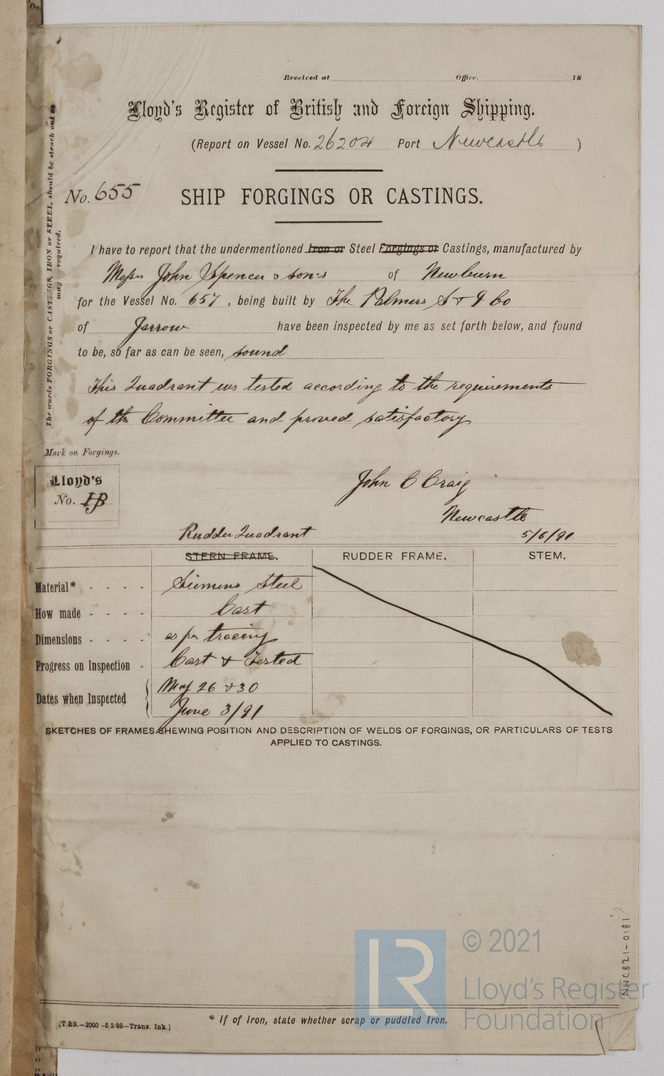 Received at Office, 18
Lloyd's Register of British and Foreign Shipping.
(Report on Vessel No. 26204 Port Newcastle )
No. 655 SHIP FORGINGS OR CASTINGS.
I have to report that the undermentioned Iron or Steel Forgings or Castings, manufactured by
Messrs John Spencer & sons of Newburn
for the Vessel No. 657, being built by The Palmers S & I Co
of Jarrow have been inspected by me as set forth below, and found
to be, so far as can be seen, sound
This Quadrant was tested according to the requirements
of the Committee and proved satisfactory
The words FORGINGS or CASTINGS, IRON or STEEL, should be struck out as
may be required.
Mark on Forgings.
Lloyd's
No.
John C Craig
Newcastle
5/6/91
Rudder Quadrant
STERN FRAME. RUDDER FRAME. STEM.
Material* - - - - Siemens Steel
How made - - - - Cast
Dimensions - - - - as per tracing
Progress on Inspection - Cast & Tested
Dates when Inspected { May 26 & 30
June 3/91
SKETCHES OF FRAMES SHEWING POSITION AND DESCRIPTION OF WELDS OF FORGINGS, OR PARTICULARS OF TESTS
APPLIED TO CASTINGS.
* If of Iron, state whether scrap or puddled Iron.
[T.&S.—2000—5,3,88—Trans. Ink.]
LR
© 2021
Lloyd's Register
Foundation
NWC821-0181